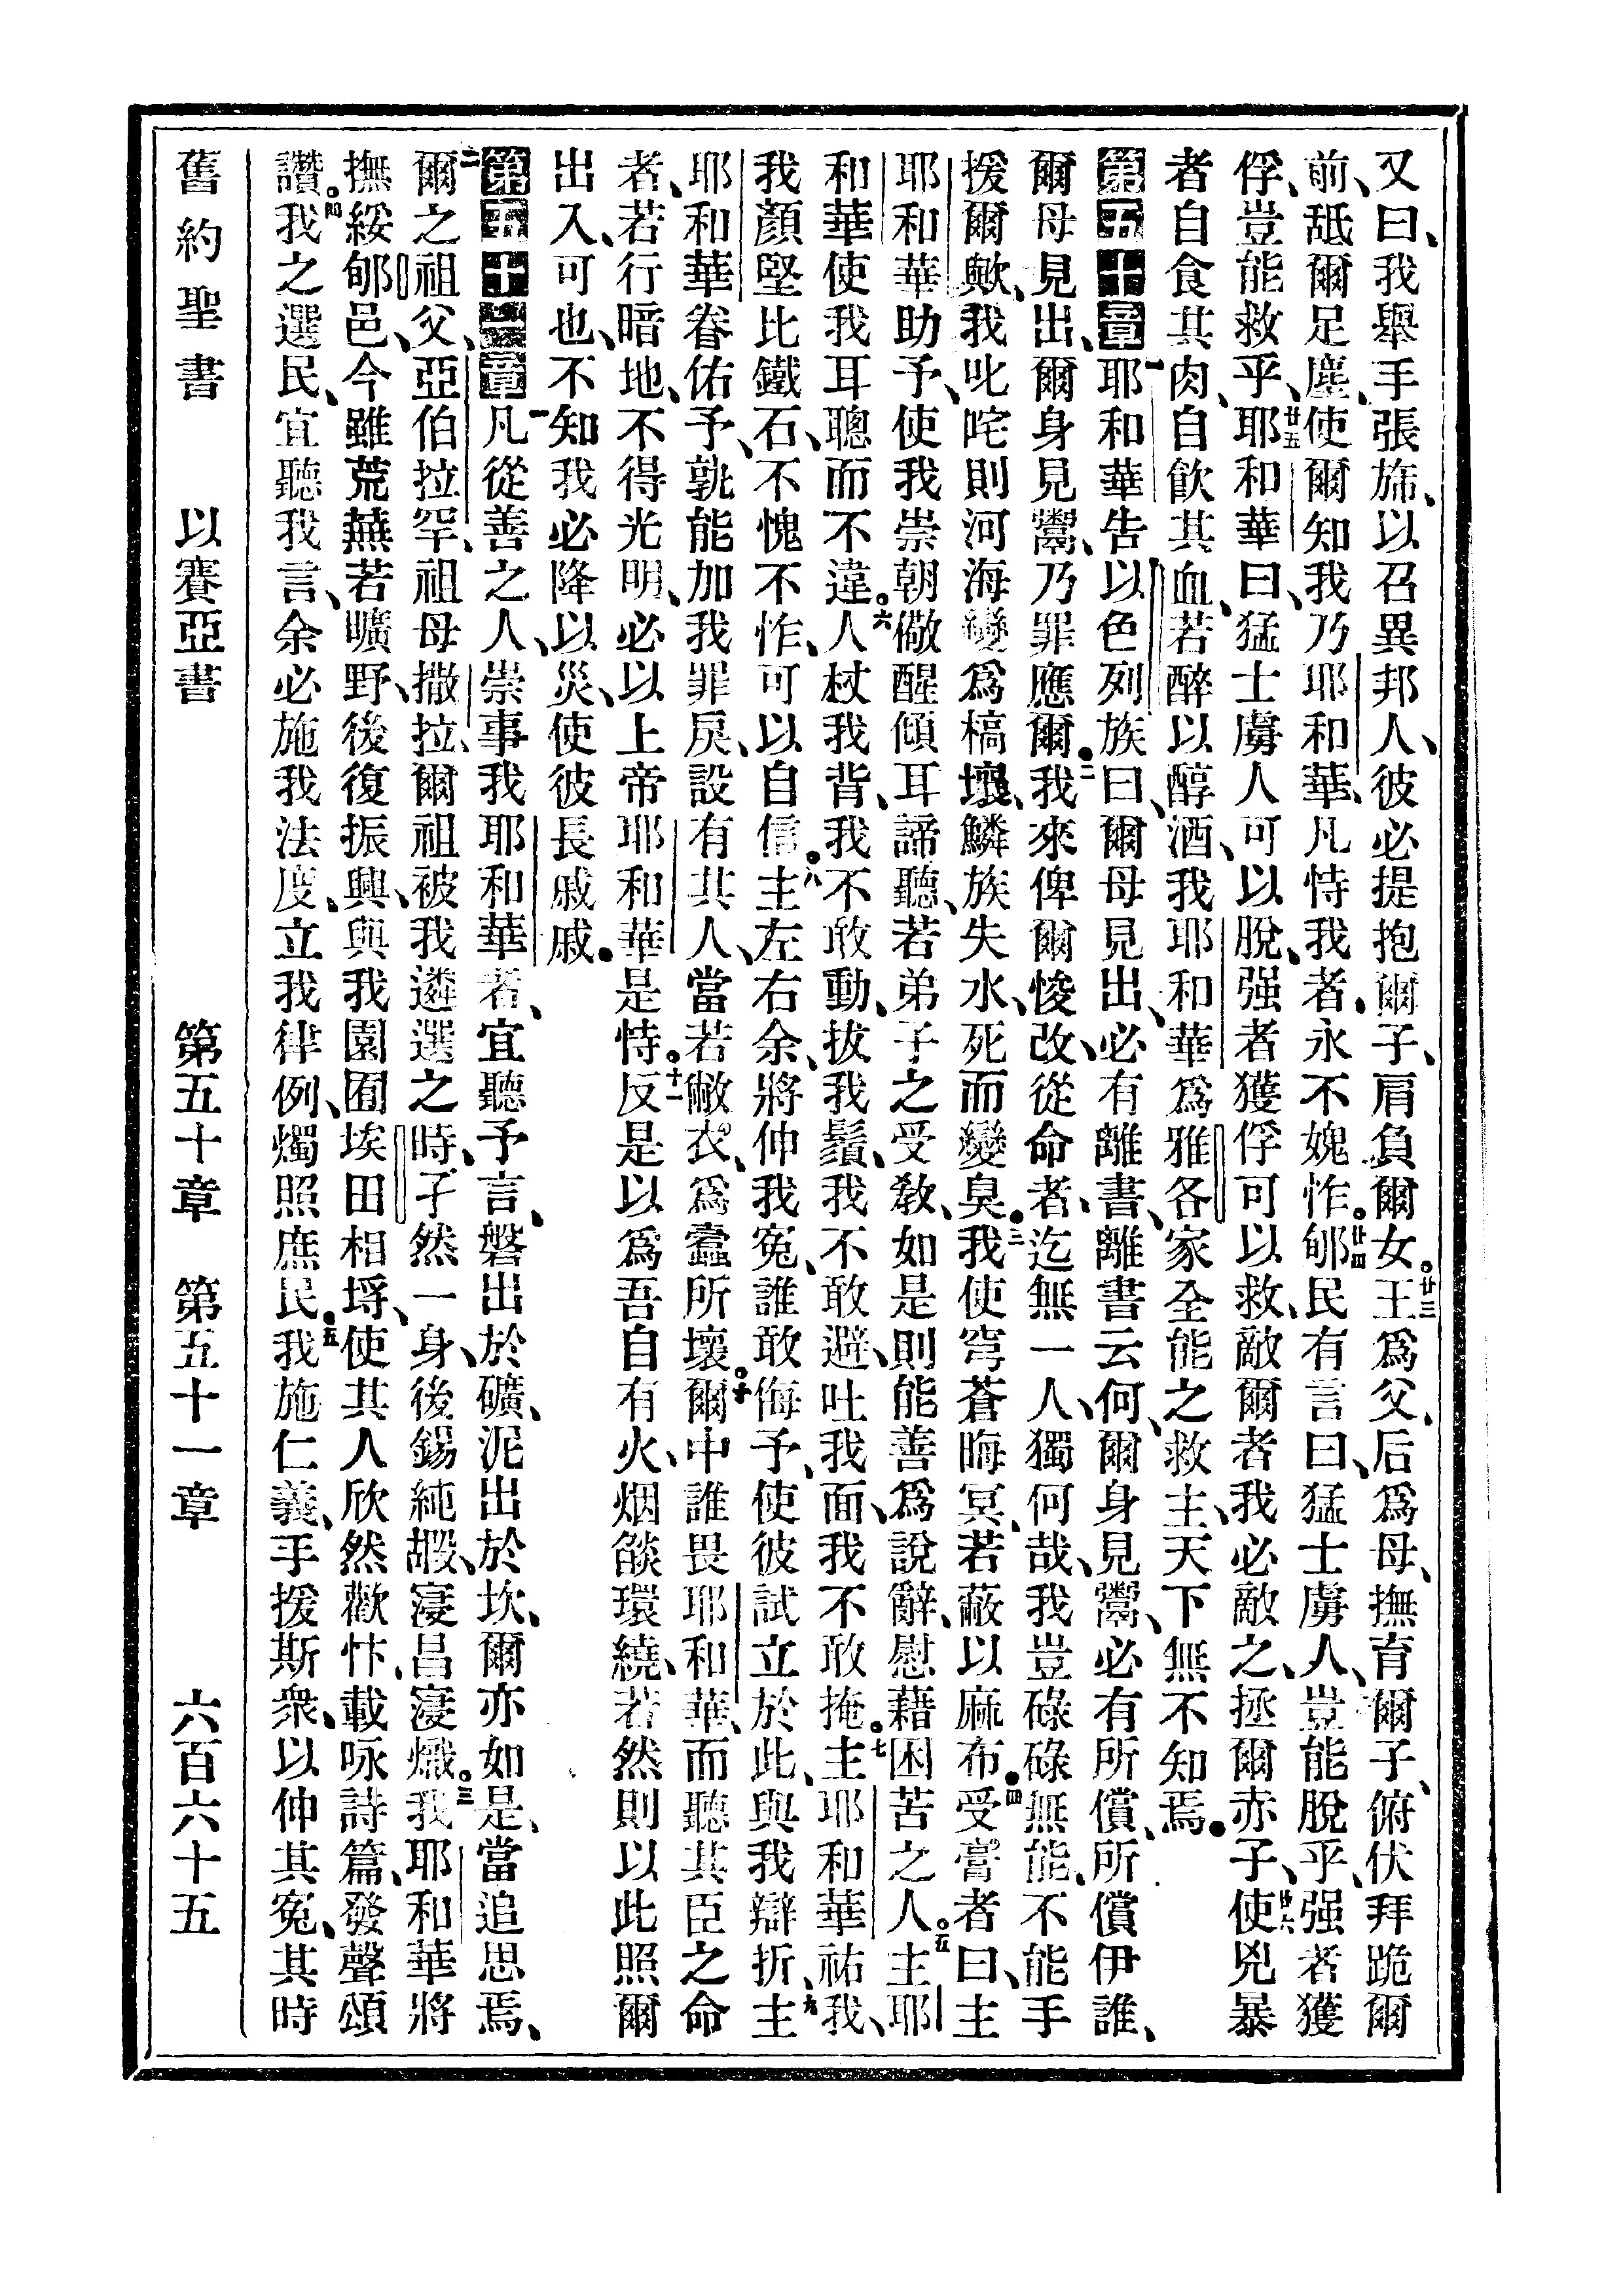 又曰、我舉手張斾、以召異邦人、彼必提抱爾子、肩負爾女。廿三王爲父、后爲母、撫育爾子、俯伏拜跪爾
前、舐爾足塵、使爾知我乃耶和華、凡恃我者、永不媿怍。廿四郇民有言曰、猛士虜人、豈能脫乎、强者獲
俘、豈能救乎、廿五耶和華曰、猛士虜人可以脫、强者獲俘可以救、敵爾者我必敵之、拯爾赤子、廿六使兇暴
者自食其肉、自飮其血、若醉以醇酒、我耶和華爲雅各家全能之救主、天下無不知焉。
第五十章一耶和華告以色列族曰、爾母見出、必有離書、離書云何、爾身見鬻、必有所償、所償伊誰、
爾母見出、爾身見鬻、乃罪應爾。二我來俾爾悛改、從命者、迄無一人、獨何哉、我豈碌碌無能、不能手
援爾歟、我叱咤則河海變爲槁壤、鱗族失水、死而變臭。三我使穹蒼晦冥、若蔽以麻布。四受膏者曰、主
耶和華助予、使我崇朝儆醒、傾耳諦聽、若弟子之受教、如是則能善爲說辭、慰藉困苦之人。五主耶
和華使我耳聰而不違。六人杖我背、我不敢動、拔我鬚、我不敢避、吐我面、我不敢掩。七主耶和華祐我、
我顏堅比鐵石、不愧不怍、可以自信。八主左右余、將伸我寃、誰敢侮予、使彼試立於此、與我辯折、九主
耶和華眷佑予、孰能加我罪戾、設有其人、當若敝衣、爲蠹所壞。十爾中誰畏耶和華、而聽其臣之命
者、若行暗地、不得光明、必以上帝耶和華是恃。十一反是以爲吾自有火、烟燄環繞、若然則以此照爾
出入、可也、不知我必降以災、使彼長戚戚。
第五十一章一凡從善之人、崇事我耶和華者、宜聽予言、磐出於礦、泥出於坎、爾亦如是、當追思焉、
二爾之祖父、亞伯拉罕、祖母撒拉、爾祖被我遴選之時、孑然一身、後錫純嘏、寖昌寖熾。三我耶和華將
撫綏郇邑、今雖荒蕪若曠野、後復振興、與我園囿埃田相埒、使其人欣然歡忭、載咏詩篇、發聲頌
讚。四我之選民、宜聽我言、余必施我法度、立我律例、燭照庶民。五我施仁義、手援斯衆、以伸其寃、其時
舊約聖書　以賽亞書　第五十章　第五十一章　六百六十五